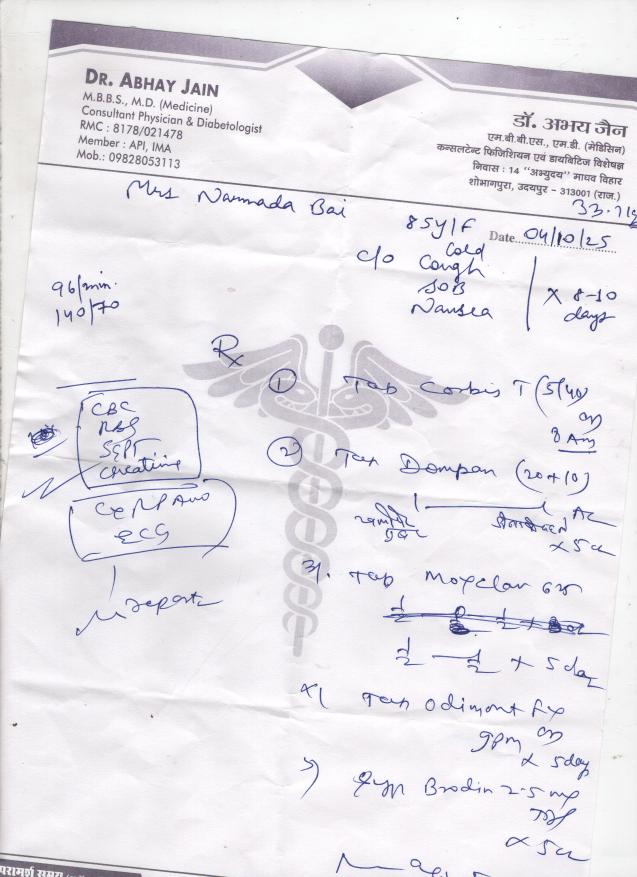 DR. ABHAY JAIN
M.B.B.S., M.D. (Medicine)
Consultant Physician & Diabetologist
RMC : 8178/021478
Member : API, IMA
Mob.: 09828053113
डॉ. अभय जैन
एम.बी.बी.एस., एम.डी. (मेडिसिन)
कन्सलटेन्ट फिजिशियन एवं डायबिटिज विशेषज्ञ
निवास : 14 "अभ्युदय" माधव विहार
शोभागपुरा, उदयपुर - 313001 (राज.)
Mrs Narmada Bai
85Y/F
Date 04/10/25
c/o Cold
Cough
SOB
Nausea
x 8-10 days
96/min.
140/70
CBC
RBS
SGPT
Creatine
ECG
Rx
1 Tab Corbis T (5/40)
8 Am
2 Tab Dompan (20+10)
AC
3. Tab Moxclav 625
1/2 — 1/2 x 5 day
Tab Odimont Fx
9pm
x 5 day
5) Syp Brodin 2.5 ml
परामर्श समय